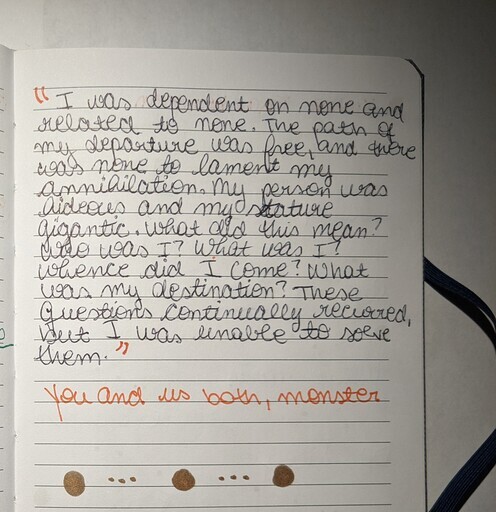 " I was dependent on none and
related to none. The path of
my departure was free, and there
was none to lament my
annihilation. My person was
hideous and my stature
gigantic. What did this mean?
Who was I? What was I?
Whence did I come? What
was my destination? These
questions continually recurred,
but I was unable to solve
them. "
You and us both, monster